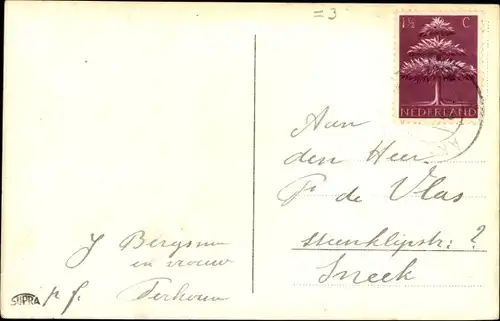 =3
1½ C
NEDERLAND
Aan
den Heer
F. de Vlas
steenklipstr: ?
Sneek
J Bergsma
en vrouw
p. f. Terhorne
SUPRA